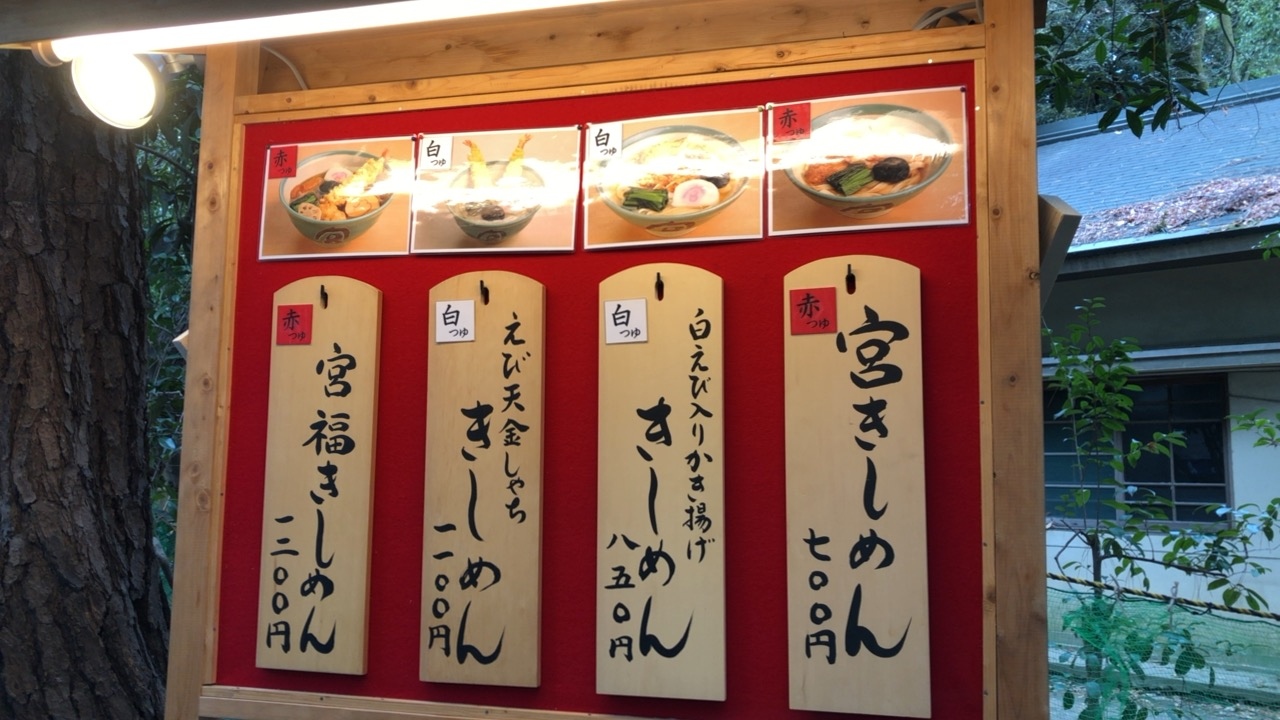 赤つゆ
白つゆ
白つゆ
赤つゆ
赤つゆ
宮きしめん
七〇〇円
白つゆ
白えび入りかき揚げ
きしめん
八五〇円
白つゆ
えび天金しゃち
きしめん
一一〇〇円
赤つゆ
宮福きしめん
一二〇〇円